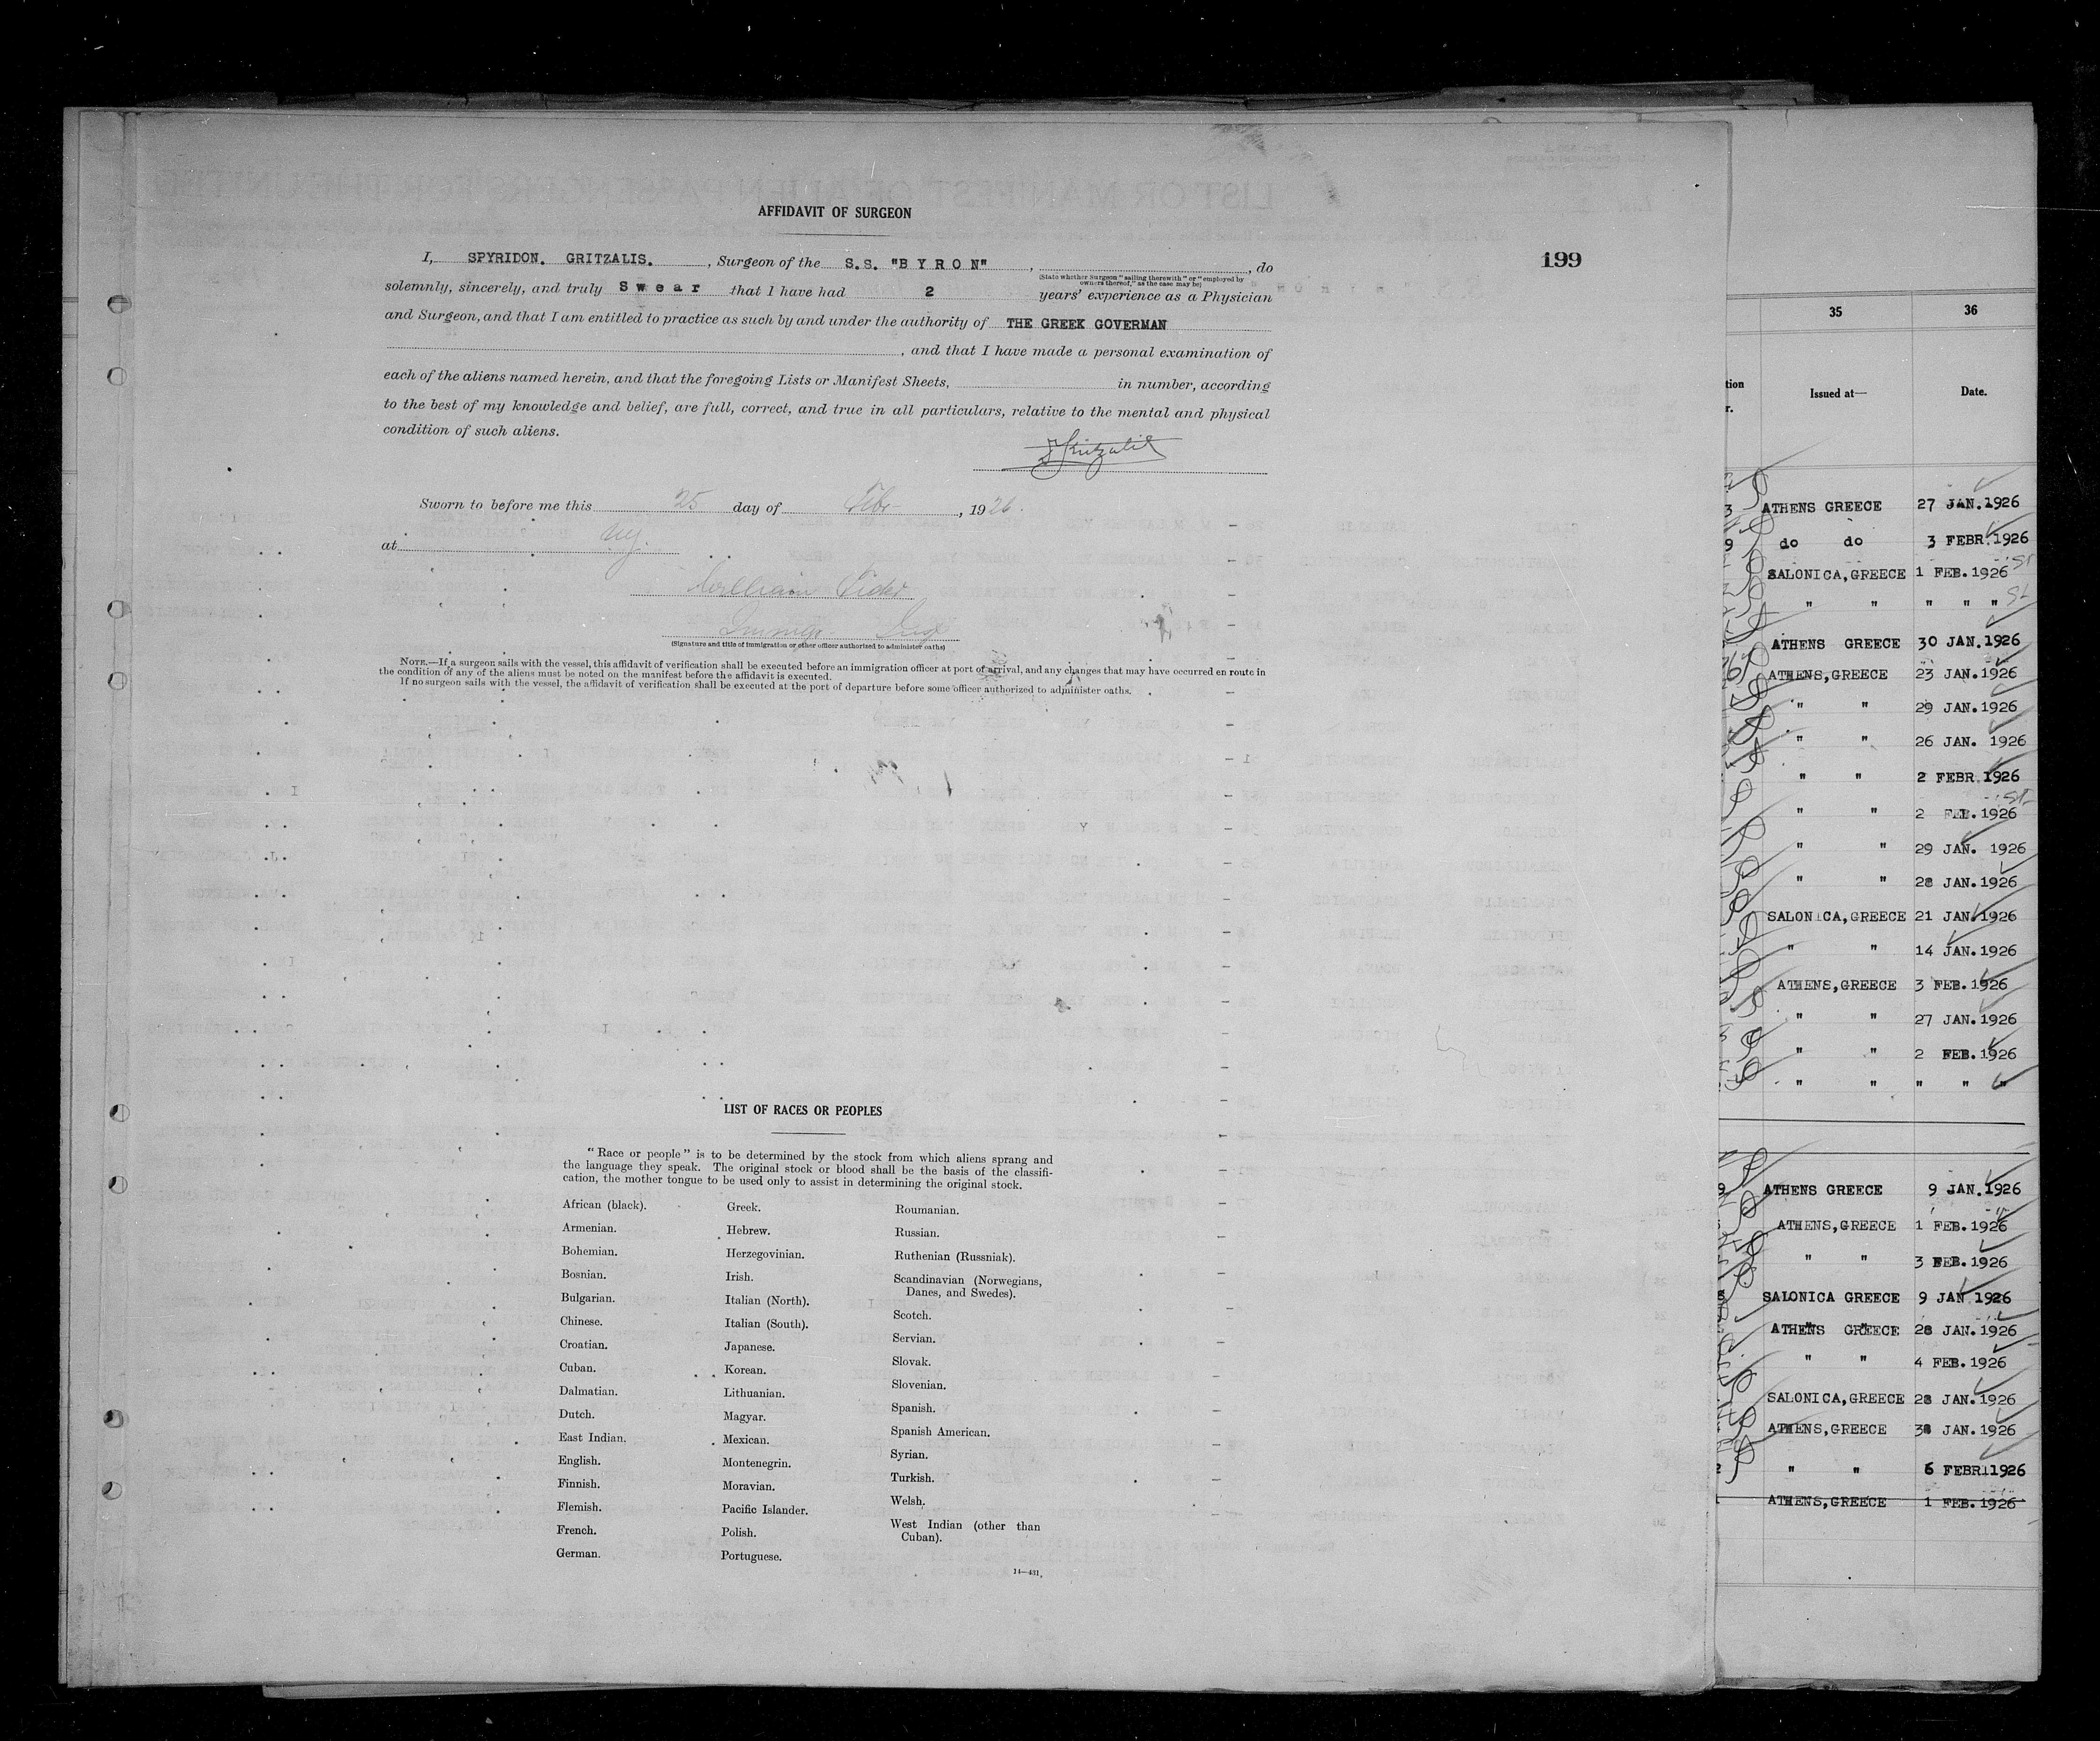 AFFIDAVIT OF SURGEON
199
I, SPYRIDON. GRITZALIS. , Surgeon of the S.S. "B Y R O N" , , do
(State whether Surgeon "sailing therewith" or "employed by
owners thereof," as the case may be)
solemnly, sincerely, and truly S w e a r that I have had 2 years' experience as a Physician
and Surgeon, and that I am entitled to practice as such by and under the authority of THE GREEK GOVERMAN
, and that I have made a personal examination of
each of the aliens named herein, and that the foregoing Lists or Manifest Sheets, in number, according
to the best of my knowledge and belief, are full, correct, and true in all particulars, relative to the mental and physical
condition of such aliens.
Sworn to before me this 25 day of Febr , 1926.
at NY.
William
(Signature and title of immigration or other officer authorized to administer oaths)
NOTE.—If a surgeon sails with the vessel, this affidavit of verification shall be executed before an immigration officer at port of arrival, and any changes that may have occurred en route in
the condition of any of the aliens must be noted on the manifest before the affidavit is executed.
If no surgeon sails with the vessel, the affidavit of verification shall be executed at the port of departure before some officer authorized to administer oaths.
LIST OF RACES OR PEOPLES
"Race or people" is to be determined by the stock from which aliens sprang and
the language they speak. The original stock or blood shall be the basis of the classifi-
cation, the mother tongue to be used only to assist in determining the original stock.
African (black).
Armenian.
Bohemian.
Bosnian.
Bulgarian.
Chinese.
Croatian.
Cuban.
Dalmatian.
Dutch.
East Indian.
English.
Finnish.
Flemish.
French.
German.
Greek.
Hebrew.
Herzegovinian.
Irish.
Italian (North).
Italian (South).
Japanese.
Korean.
Lithuanian.
Magyar.
Mexican.
Montenegrin.
Moravian.
Pacific Islander.
Polish.
Portuguese.
Roumanian.
Russian.
Ruthenian (Russniak).
Scandinavian (Norwegians,
Danes, and Swedes).
Scotch.
Servian.
Slovak.
Slovenian.
Spanish.
Spanish American.
Syrian.
Turkish.
Welsh.
West Indian (other than
Cuban).
14—431
35 36
Issued at— Date.
ATHENS GREECE 27 JAN.1926
do do 3 FEBR.1926
SALONICA,GREECE 1 FEB.1926
" " " " "
ATHENS GREECE 30 JAN.1926
ATHENS,GREECE 23 JAN.1926
" " 29 JAN.1926
" " 26 JAN. 1926
" " 2 FEBR.1926
" " 2 1926
" " 29 JAN. 1926
" " 28 JAN.1926
SALONICA,GREECE 21 JAN.1926
" " 14 JAN.1926
ATHENS,GREECE 3 FEB.1926
" " 27 JAN.1926
" " 2 FEB.1926
" " " " "
ATHENS GREECE 9 JAN.1926
ATHENS,GREECE 1 FEB.1926
" " 3 FEB.1926
SALONICA GREECE 9 JAN 1926
ATHENS GREECE 28 JAN.1926
" " 4 FEB.1926
SALONICA,GREECE 28 JAN.1926
ATHENS,GREECE JAN.1926
" " 6 FEBR.1926
ATHENS,GREECE 1 FEB.1926